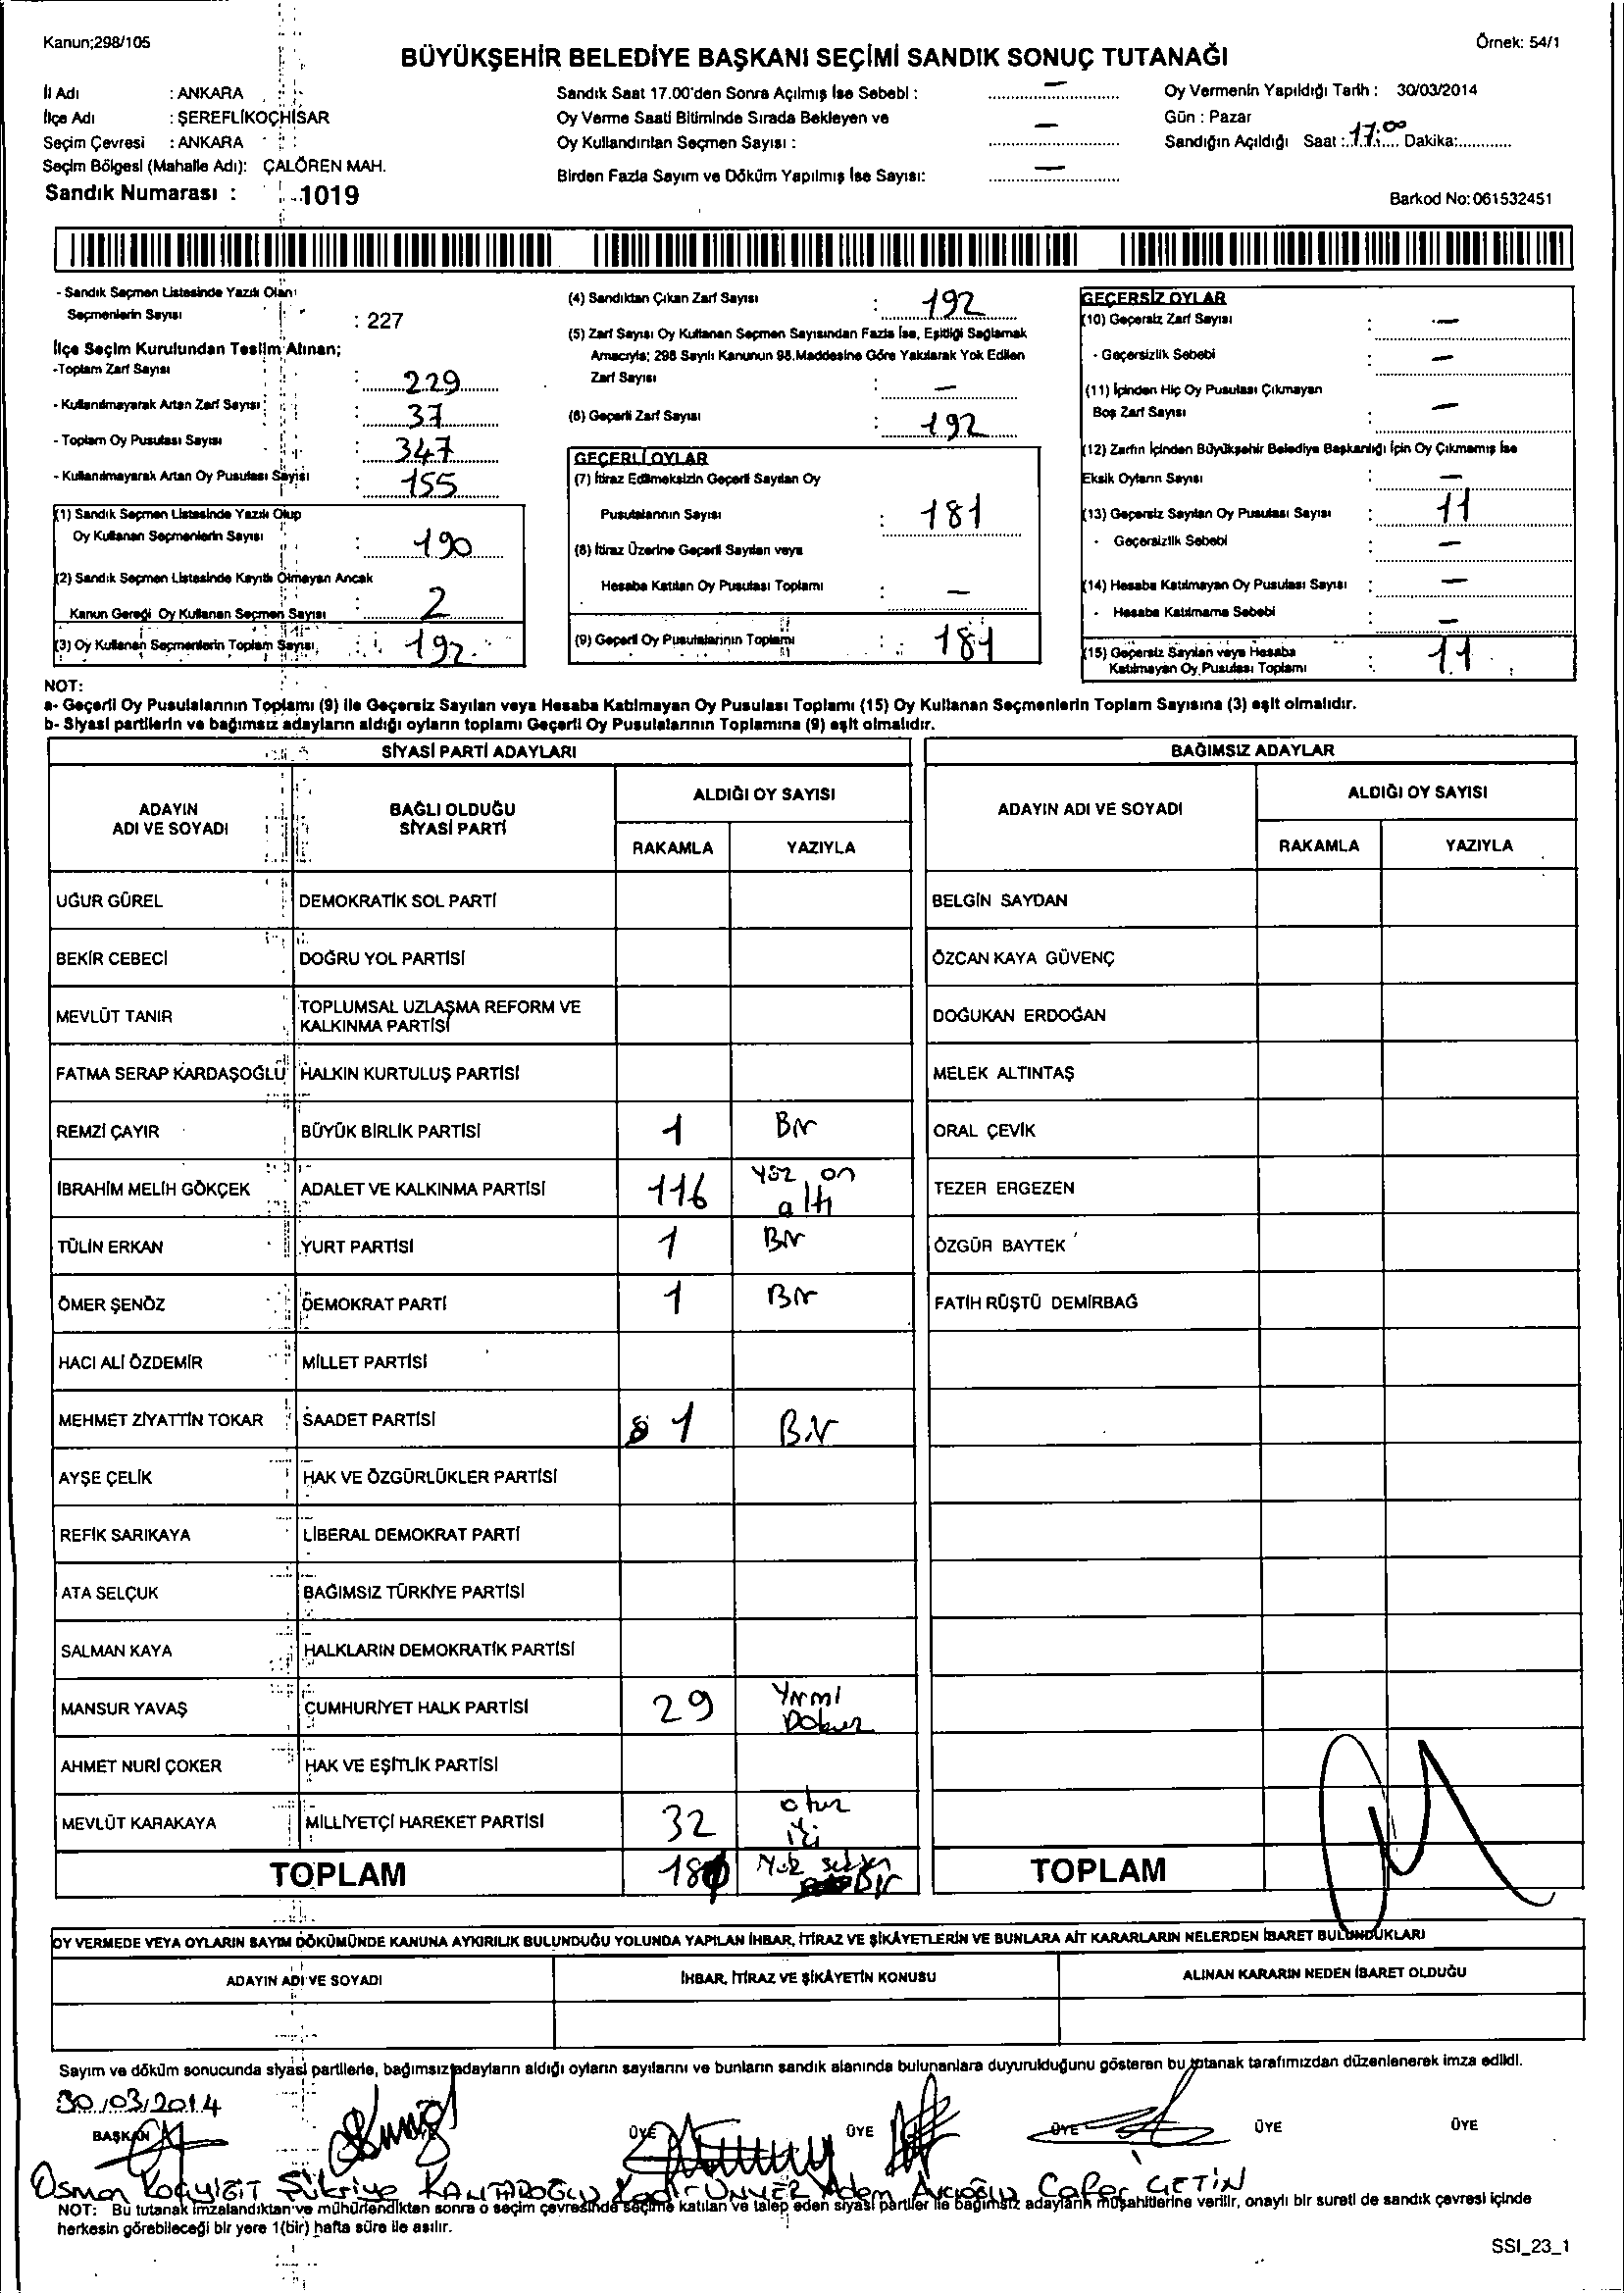 Kanun;298/105
Örnek: 54/1
BÜYÜKŞEHİR BELEDİYE BAŞKANI SEÇİMİ SANDIK SONUÇ TUTANAĞI
İl Adı : ANKARA
İlçe Adı : ŞEREFLİKOÇHİSAR
Seçim Çevresi : ANKARA
Seçim Bölgesi (Mahalle Adı): ÇALÖREN MAH.
Sandık Numarası : 1019
Sandık Saat 17.00'den Sonra Açılmış İse Sebebi : —
Oy Verme Saati Bitiminde Sırada Bekleyen ve
Oy Kullandırılan Seçmen Sayısı : —
Birden Fazla Sayım ve Döküm Yapılmış İse Sayısı: —
Oy Vermenin Yapıldığı Tarih : 30/03/2014
Gün : Pazar
Sandığın Açıldığı Saat : 17:00 Dakika:
Barkod No: 061532451
- Sandık Seçmen Listesinde Yazılı Olan
Seçmenlerin Sayısı : 227
İlçe Seçim Kurulundan Teslim Alınan;
-Toplam Zarf Sayısı : 229
- Kullanılmayarak Artan Zarf Sayısı : 37
- Toplam Oy Pusulası Sayısı : 347
- Kullanılmayarak Artan Oy Pusulası Sayısı : 155
(1) Sandık Seçmen Listesinde Yazılı Olup
Oy Kullanan Seçmenlerin Sayısı : 190
(2) Sandık Seçmen Listesinde Kayıtlı Olmayan Ancak
Kanun Gereği Oy Kullanan Seçmen Sayısı : 2
(3) Oy Kullanan Seçmenlerin Toplam Sayısı : 192
(4) Sandıktan Çıkan Zarf Sayısı : 192
(5) Zarf Sayısı Oy Kullanan Seçmen Sayısından Fazla İse, Eşitliği Sağlamak
Amacıyla; 298 Sayılı Kanunun 98.Maddesine Göre Yakılarak Yok Edilen
Zarf Sayısı : —
(6) Geçerli Zarf Sayısı : 192
GEÇERLİ OYLAR
(7) İtiraz Edilmeksizin Geçerli Sayılan Oy
Pusulalarının Sayısı : 181
(8) İtiraz Üzerine Geçerli Sayılan veya
Hesaba Katılan Oy Pusulası Toplamı : —
(9) Geçerli Oy Pusulalarının Toplamı : 181
GEÇERSİZ OYLAR
(10) Geçersiz Zarf Sayısı : —
- Geçersizlik Sebebi : —
(11) İçinden Hiç Oy Pusulası Çıkmayan
Boş Zarf Sayısı : —
(12) Zarfın İçinden Büyükşehir Belediye Başkanlığı İçin Oy Çıkmamış İse
Eksik Oyların Sayısı : —
(13) Geçersiz Sayılan Oy Pusulası Sayısı : 11
- Geçersizlik Sebebi : —
(14) Hesaba Katılmayan Oy Pusulası Sayısı : —
- Hesaba Katılmama Sebebi : —
(15) Geçersiz Sayılan veya Hesaba
Katılmayan Oy Pusulası Toplamı : 11
NOT:
a- Geçerli Oy Pusulalarının Toplamı (9) ile Geçersiz Sayılan veya Hesaba Katılmayan Oy Pusulası Toplamı (15) Oy Kullanan Seçmenlerin Toplam Sayısına (3) eşit olmalıdır.
b- Siyasi partilerin ve bağımsız adayların aldığı oyların toplamı Geçerli Oy Pusulalarının Toplamına (9) eşit olmalıdır.
SİYASİ PARTİ ADAYLARI
BAĞIMSIZ ADAYLAR
ADAYIN
ADI VE SOYADI
BAĞLI OLDUĞU
SİYASİ PARTİ
ALDIĞI OY SAYISI
RAKAMLA YAZIYLA
ADAYIN ADI VE SOYADI
ALDIĞI OY SAYISI
RAKAMLA YAZIYLA
UĞUR GÜREL DEMOKRATİK SOL PARTİ BELGİN SAYDAN
BEKİR CEBECİ DOĞRU YOL PARTİSİ ÖZCAN KAYA GÜVENÇ
MEVLÜT TANIR TOPLUMSAL UZLAŞMA REFORM VE
KALKINMA PARTİSİ DOĞUKAN ERDOĞAN
FATMA SERAP KARDAŞOĞLU HALKIN KURTULUŞ PARTİSİ MELEK ALTINTAŞ
REMZİ ÇAYIR BÜYÜK BİRLİK PARTİSİ 1 Bir ORAL ÇEVİK
İBRAHİM MELİH GÖKÇEK ADALET VE KALKINMA PARTİSİ 116 yüz on
altı TEZER ERGEZEN
TÜLİN ERKAN YURT PARTİSİ 1 Bir ÖZGÜR BAYTEK
ÖMER ŞENÖZ DEMOKRAT PARTİ 1 Bir FATİH RÜŞTÜ DEMİRBAĞ
HACI ALİ ÖZDEMİR MİLLET PARTİSİ
MEHMET ZİYATTİN TOKAR SAADET PARTİSİ 1 Bir
AYŞE ÇELİK HAK VE ÖZGÜRLÜKLER PARTİSİ
REFİK SARIKAYA LİBERAL DEMOKRAT PARTİ
ATA SELÇUK BAĞIMSIZ TÜRKİYE PARTİSİ
SALMAN KAYA HALKLARIN DEMOKRATİK PARTİSİ
MANSUR YAVAŞ CUMHURİYET HALK PARTİSİ 29 Yirmi
Dokuz
AHMET NURİ ÇOKER HAK VE EŞİTLİK PARTİSİ
MEVLÜT KARAKAYA MİLLİYETÇİ HAREKET PARTİSİ 32 otuz
iki
TOPLAM 181 Yüz seksen
Bir
TOPLAM
OY VERMEDE VEYA OYLARIN SAYIM DÖKÜMÜNDE KANUNA AYKIRILIK BULUNDUĞU YOLUNDA YAPILAN İHBAR, İTİRAZ VE ŞİKÂYETLERİN VE BUNLARA AİT KARARLARIN NELERDEN İBARET BULUNDUKLARI
ADAYIN ADI VE SOYADI İHBAR, İTİRAZ VE ŞİKÂYETİN KONUSU ALINAN KARARIN NEDEN İBARET OLDUĞU
Sayım ve döküm sonucunda siyasi partilerle, bağımsız adayların aldığı oyların sayılarını ve bunların sandık alanında bulunanlara duyurulduğunu gösteren bu tutanak tarafımızdan düzenlenerek imza edildi.
30/03/2014
BAŞKAN ÜYE ÜYE ÜYE ÜYE ÜYE
Osman KOÇYİĞİT Şükriye Kadir ÜNVER Adem AVCIOĞLU Cafer ÇETİN
NOT: Bu tutanak imzalandıktan ve mühürlendikten sonra o seçim çevresinde seçime katılan ve talep eden siyasi partiler ile bağımsız adayların müşahitlerine verilir, onaylı bir sureti de sandık çevresi içinde
herkesin görebileceği bir yere 1(bir) hafta süre ile asılır.
SSI_23_1